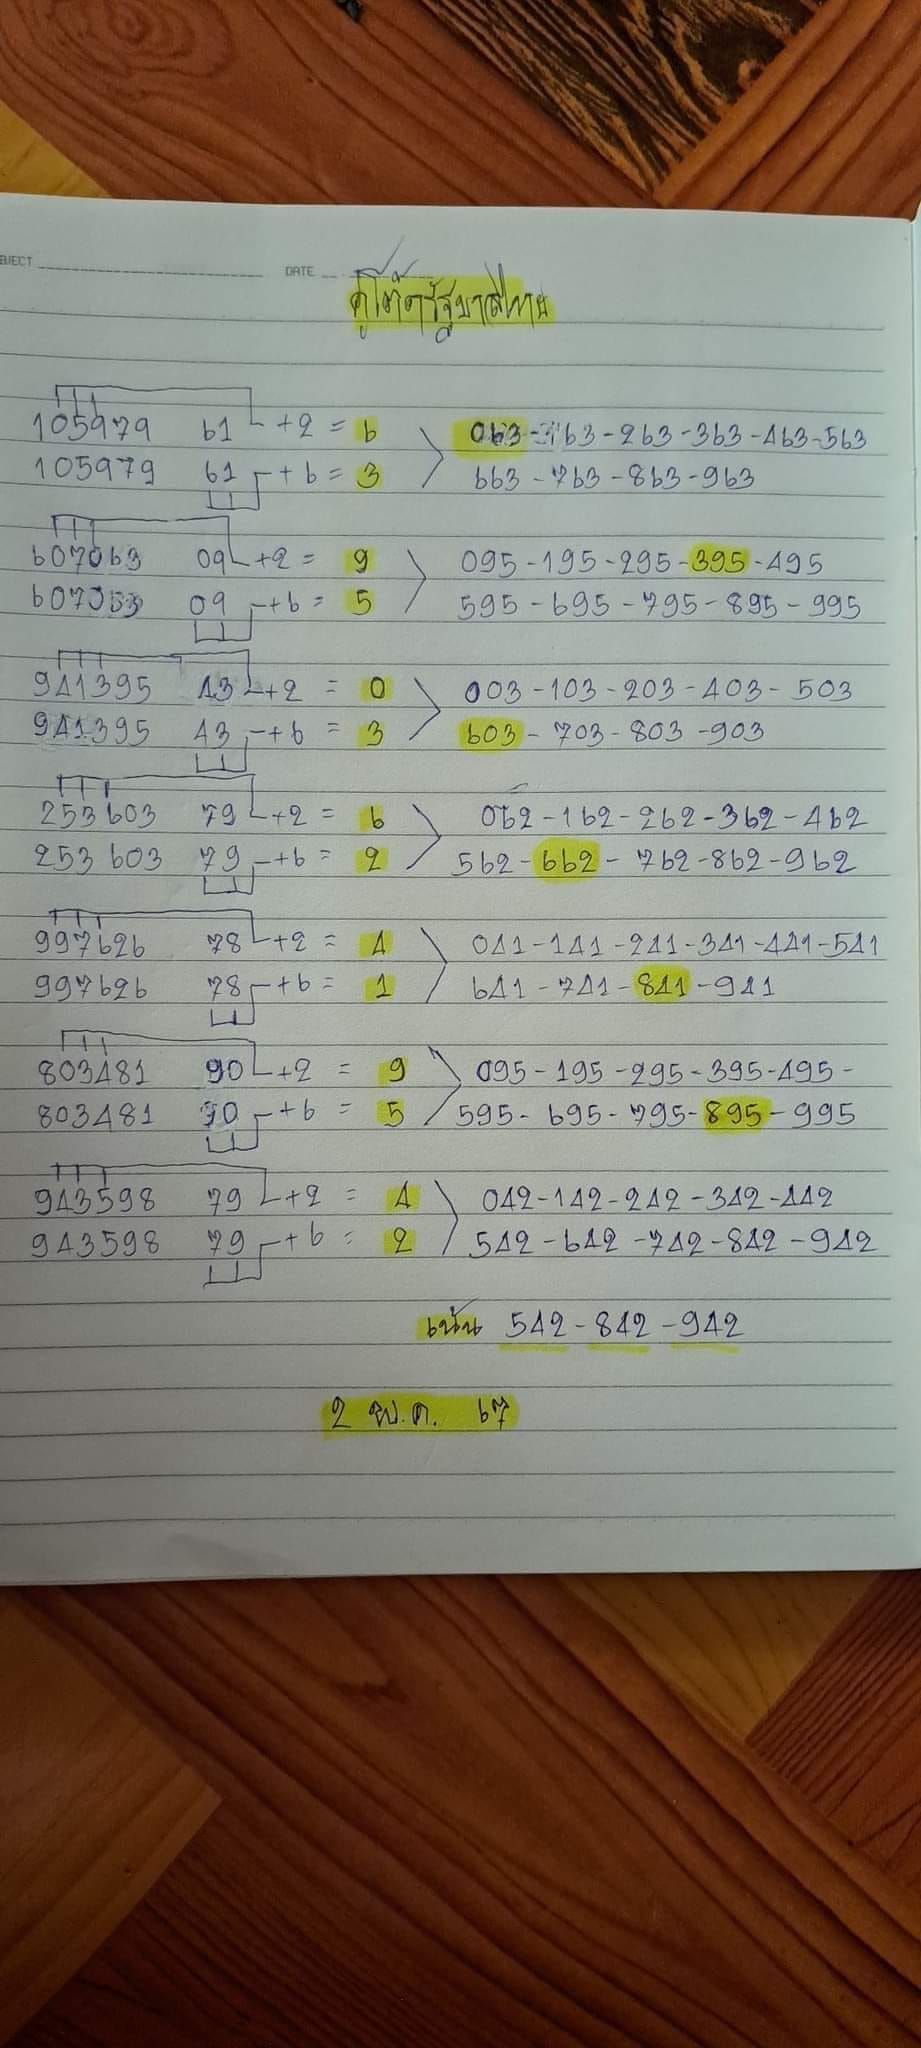 BJECT DATE
คู่โต๊ดรัฐบาลไทย
105979 61 +2 = 6 063-163-263-363-463-563
105979 61 +6 = 3 663-763-863-963
607063 09 +2 = 9 095-195-295-395-495
607063 09 +6 = 5 595-695-795-895-995
941395 43 +2 = 0 003-103-203-403-503
941395 43 +6 = 3 603-703-803-903
253603 79 +2 = 6 062-162-262-362-462
253603 79 +6 = 2 562-662-762-862-962
997626 78 +2 = 4 041-141-241-341-441-541
997626 78 +6 = 1 641-741-841-941
803481 90 +2 = 9 095-195-295-395-495-
803481 90 +6 = 5 595-695-795-895-995
943598 79 +2 = 4 042-142-242-342-442
943598 79 +6 = 2 542-642-742-842-942
เน้น 542-842-942
2 พ.ค. 67